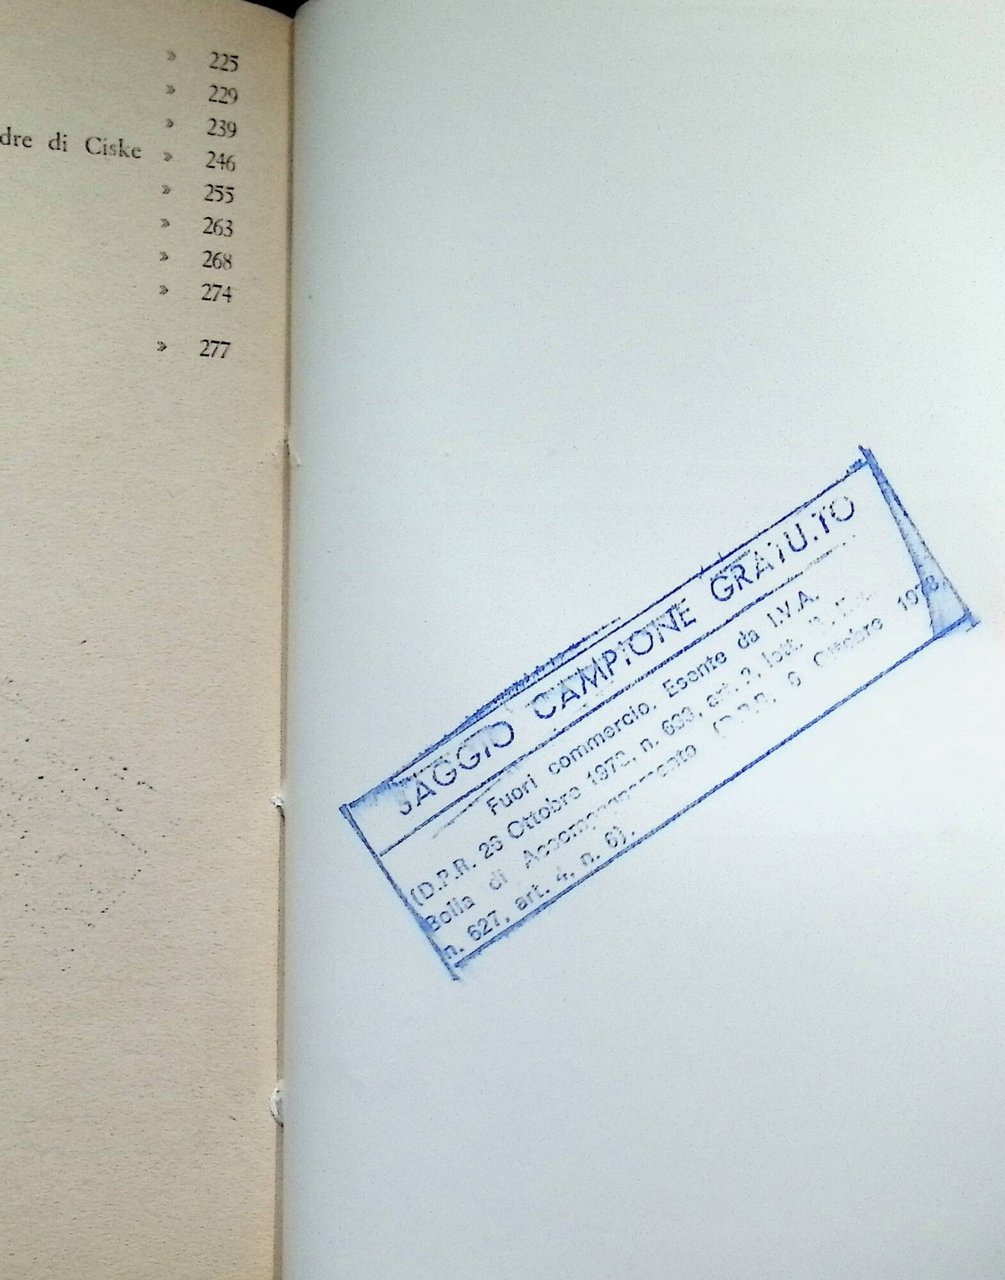 » 225
» 229
» 239
dre di Ciske » 246
» 255
» 263
» 268
» 274
» 277
SAGGIO CAMPIONE GRATUITO
Fuori commercio. Esente da I.V.A.
(D.P.R. 26 Ottobre 1972, n. 633, art. 2, lett.
Bolla di Accompagnamento (D.P.R. 6 Ottobre 1978,
n. 627, art. 4, n. 6).